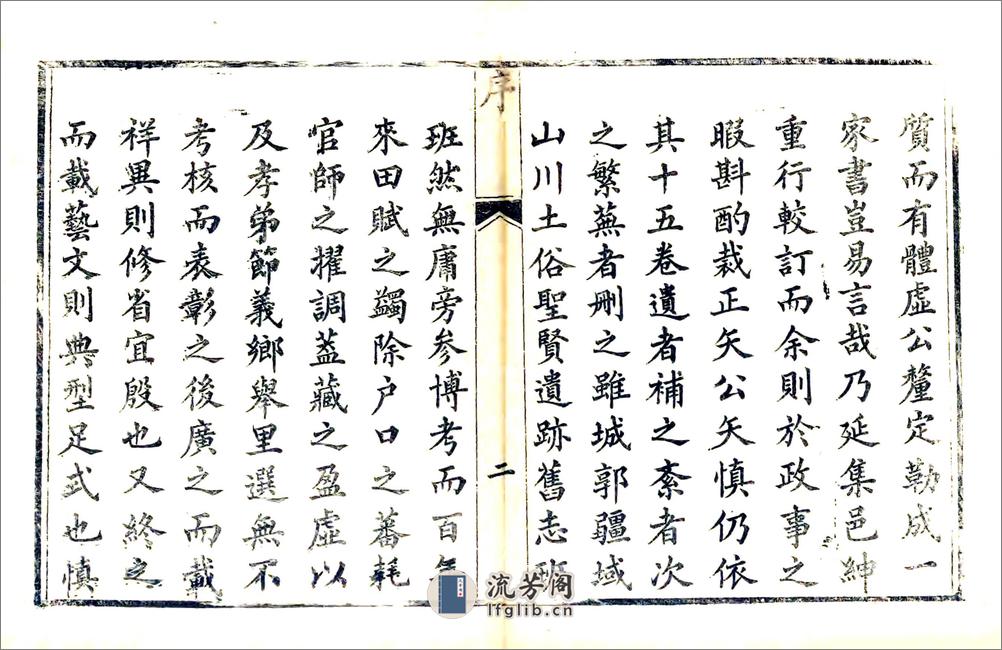 質而有體虛公釐定勒成一
家書豈易言哉乃延集邑紳
重行較訂而余則於政事之
暇斟酌裁正矢公矢慎仍依
其十五卷遺者補之紊者次
之繁蕪者刪之雖城郭疆域
山川土俗聖賢遺跡舊志班
序
二
班然無庸旁參博考而百年
來田賦之蠲除户口之蕃耗
官師之擢調蓋藏之盈虛以
及孝弟節義鄉舉里選無不
考核而表彰之後廣之而載
祥異則修省宜殷也又終之
而載藝文則典型足式也慎
流芳阁
lfglib.cn